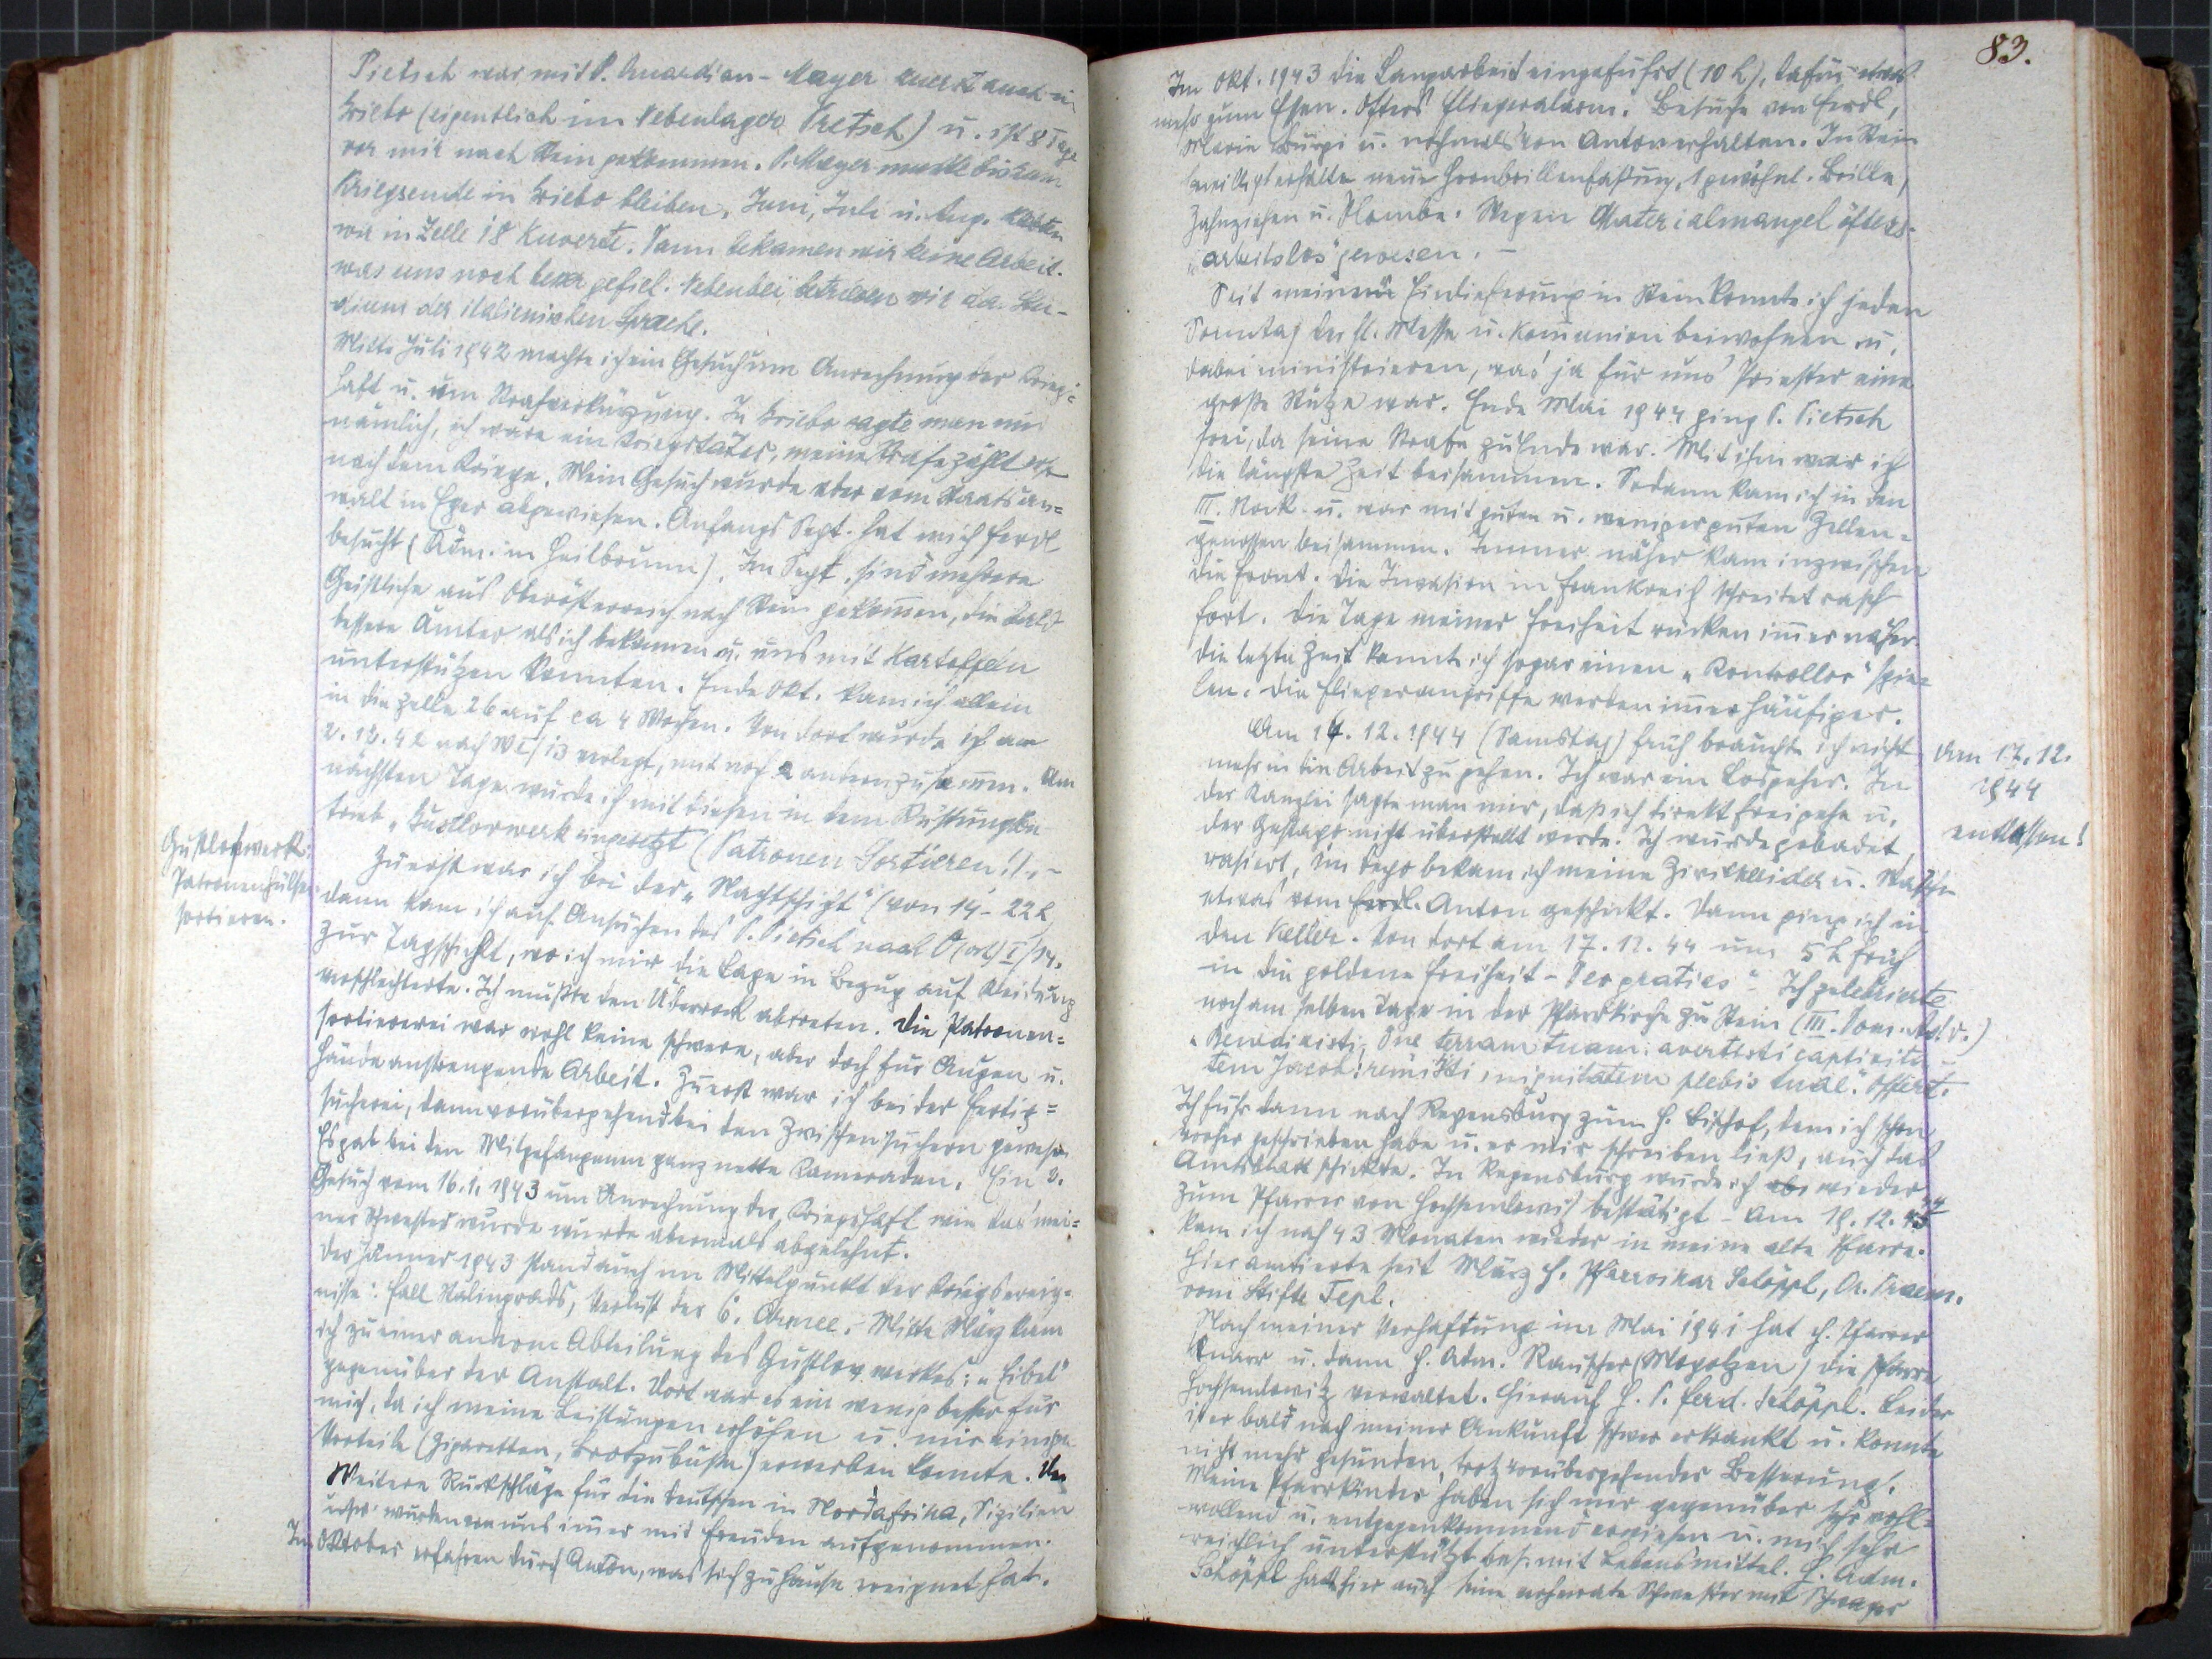 Pietsch war mit P. Guardian-Mayer zuerst auch in
Griebo (eigentlich im Nebenlager Pretsch) u. ist 8 Tage
vor mir nach Stein gekommen. P. Mayer mußte bis zum
Kriegsende in Griebo bleiben. Juni, Juli u. Aug. klebten
wir in Zelle 18 Kuverte. Dann bekamen wir keine Arbeit.
was uns noch besser gefiel. Nebenbei betrieben wir da Stu-
dium der italienischen Sprache.
Mitte Juli 1942 machte ich ein Gesuch um Anrechnung der Krieg-
haft u. um Strafverkürzung. In Griebo sagte man mir
nämlich, ich wäre ein Kriegstäter, meine Strafe zählt erst
nach dem Kriege. Mein Gesuch wurde aber vom Staatsan=
walt in Eger abgewiesen. Anfangs Sept. hat mich Ferdl
besucht (Adm. in Heilbrunn). Im Sept. sind mehrere
Geistliche aus Oberösterreich nach Stein gekommen, die bald
bessere Ämter als ich bekamen u. uns mit Kartoffeln
unterstützen konnten. Ende Okt. kam ich allein
in die Zelle 26 auf ca 4 Wochen. Von dort wurde ich am
2. 12. 42 nach W I/13 verlegt, mit noch 2 anderen zusammen. Am
nächsten Tage wurde ich mit diesen in dem Rüstungsbe
trieb „Gustlowwerk eingesetzt (Patronen Sortieren!). -
Zuerst war ich bei der „Nachtschicht" (von 14 - 22 h
Gustlofwerk:
Patronenhülsen
sortieren.
dann kam ich auf Ansuchen des P. Pietsch nach O (ost) I/14.
zur Tagschicht, wo ich mir die Lage in Bezug auf Kleidung
verschlechterte. Ich mußte den Überrock abtreten. Die Patronen=
sortiererei war wohl keine schwere, aber doch für Augen u.
Hände anstrengende Arbeit. Zuerst war ich bei der Fertig=
sucherei, dann vorübergehend bei den Zwischensuchern gewesen
Es gab bei den Mitgefangenen ganz nette Kameraden. Ein 2.
Gesuch vom 16. 1. 1943 um Anrechnung der Kriegshaft wie das mei=
ner Schwester wurde wurde abermals abgelehnt.
Der Jänner 1943 stand auch im Mittelpunkt der Kriegsereig=
nisse: Fall Stalingrads, Verlust der 6. Armee. - Mitte März kam
ich zu einer anderen Abteilung des Gustlow werkes: „Eibel"
gegenüber der Anstalt. Dort war es ein wenig besser für
mich, da ich meine Leistungen erhöhen u. mir einige
Vorteile (Zigaretten, Brotzubuße) erwerben konnte.
Weitere Rückschläge für die Deutschen in Nordafrika, Sizilien
usw. wurden von uns immer mit Freuden aufgenommen.
Im Oktober erfahren durch Anton, was sich zuhause ereignet hat.
83.
Im Okt. 1943 die Langarbeit eingeführt (10 h), dafür etwas
mehr zum Essen. Öfters Fliegeralarm. Besuche von Ferdl,
Maria Burgi u. nochmals von Anton erhalten. In Stein
bewilligt erhalten neue Hornbrillenfaßung, 1 gewöhnl. Brille,
Zahnziehen u. Plombe. Wegen Materialmangel öfters
„arbeitslos" gewesen. -
Seit meiner Einlieferung in Stein konnte ich jeden
Sonntag der hl. Messe u. Kommunion beiwohnen u.
dabei ministrieren, was ja für uns Priester eine
große Stütze war. Ende Mai 1944 ging P. Pietsch
frei, da seine Strafe zu Ende war. Mit ihm war ich
die längste Zeit beisammen. Sodann kam ich in den
III. Stock u. war mit guten u. weniger guten Zellen-
genossen beisammen. Immer näher kam inzwischen
die Front. Die Invasion in Frankreich schreitet rasch
fort. Die Tage meiner Freiheit rücken immer näher.
Die letzte Zeit konnte ich sogar einen „Kontrollor" spie=
len. Die Fliegerangriffe werden immer häufiger.
Am 16. 12. 1944 (Samstag) früh brauchte ich nicht
mehr in die Arbeit zu gehen. Ich war ein Losgeher. In
der Kanzlei sagte man mir, daß ich direkt freigehe u.
der Gestapo nicht überstellt werde. Ich wurde gebadet,
rasiert, im Depo bekam ich meine Zivilkleider u. Wäsche
etwas vom Ferdl. Anton geschickt. Dann ging ich in
den Keller. Von dort am 17. 12. 44 um 5 h früh
in die goldene Freiheit - Deo gratias - Ich zelebrierte
noch am selben Tage in der Pfarrkirche zu Stein (III. Dom. Adv.)
„Benedixisti, Dne terram tuam: avertisti captivita-
tem Jacob: remisisti iniquitatem plebis tuae." Offert.
Am 17. 12.
1944
entlassen!
Ich fuhr dann nach Regensburg zum H. Bischof, dem ich schon
vorher geschrieben habe u. er mir schreiben ließ, auch das
Amtsblatt schickte. In Regensburg wurde ich als wieder
zum Pfarrer von Hochsemlowitz bestätigt - Am 19. 12. 44
kam ich nach 43 Monaten wieder in meine alte Pfarre.
Hier amtierte seit März H. Pfarrvikar Schöppl, Or. Praem.
vom Stifte Tepl.
Nach meiner Verhaftung im Mai 1941 hat H. Pfarrer
Knarr u. dann H. Adm. Rauscher (Mogolzen) die Pfarre
Hochsemlowitz verwaltet. Hierauf H. P. Ferd. Schöppl. Leider
ist er bald nach meiner Ankunft schwer erkrankt u. konnte
nicht mehr gesunden, trotz vorübergehender Besserung.
Meine Pfarrkinder haben sich mir gegenüber sehr wohl=
wollend u. entgegenkommend erwiesen u. mich sehr
reichlich unterstützt bes. mit Lebensmittel. H. Adm.
Schöppl hatte hier auch seine Schwester mit Schwager